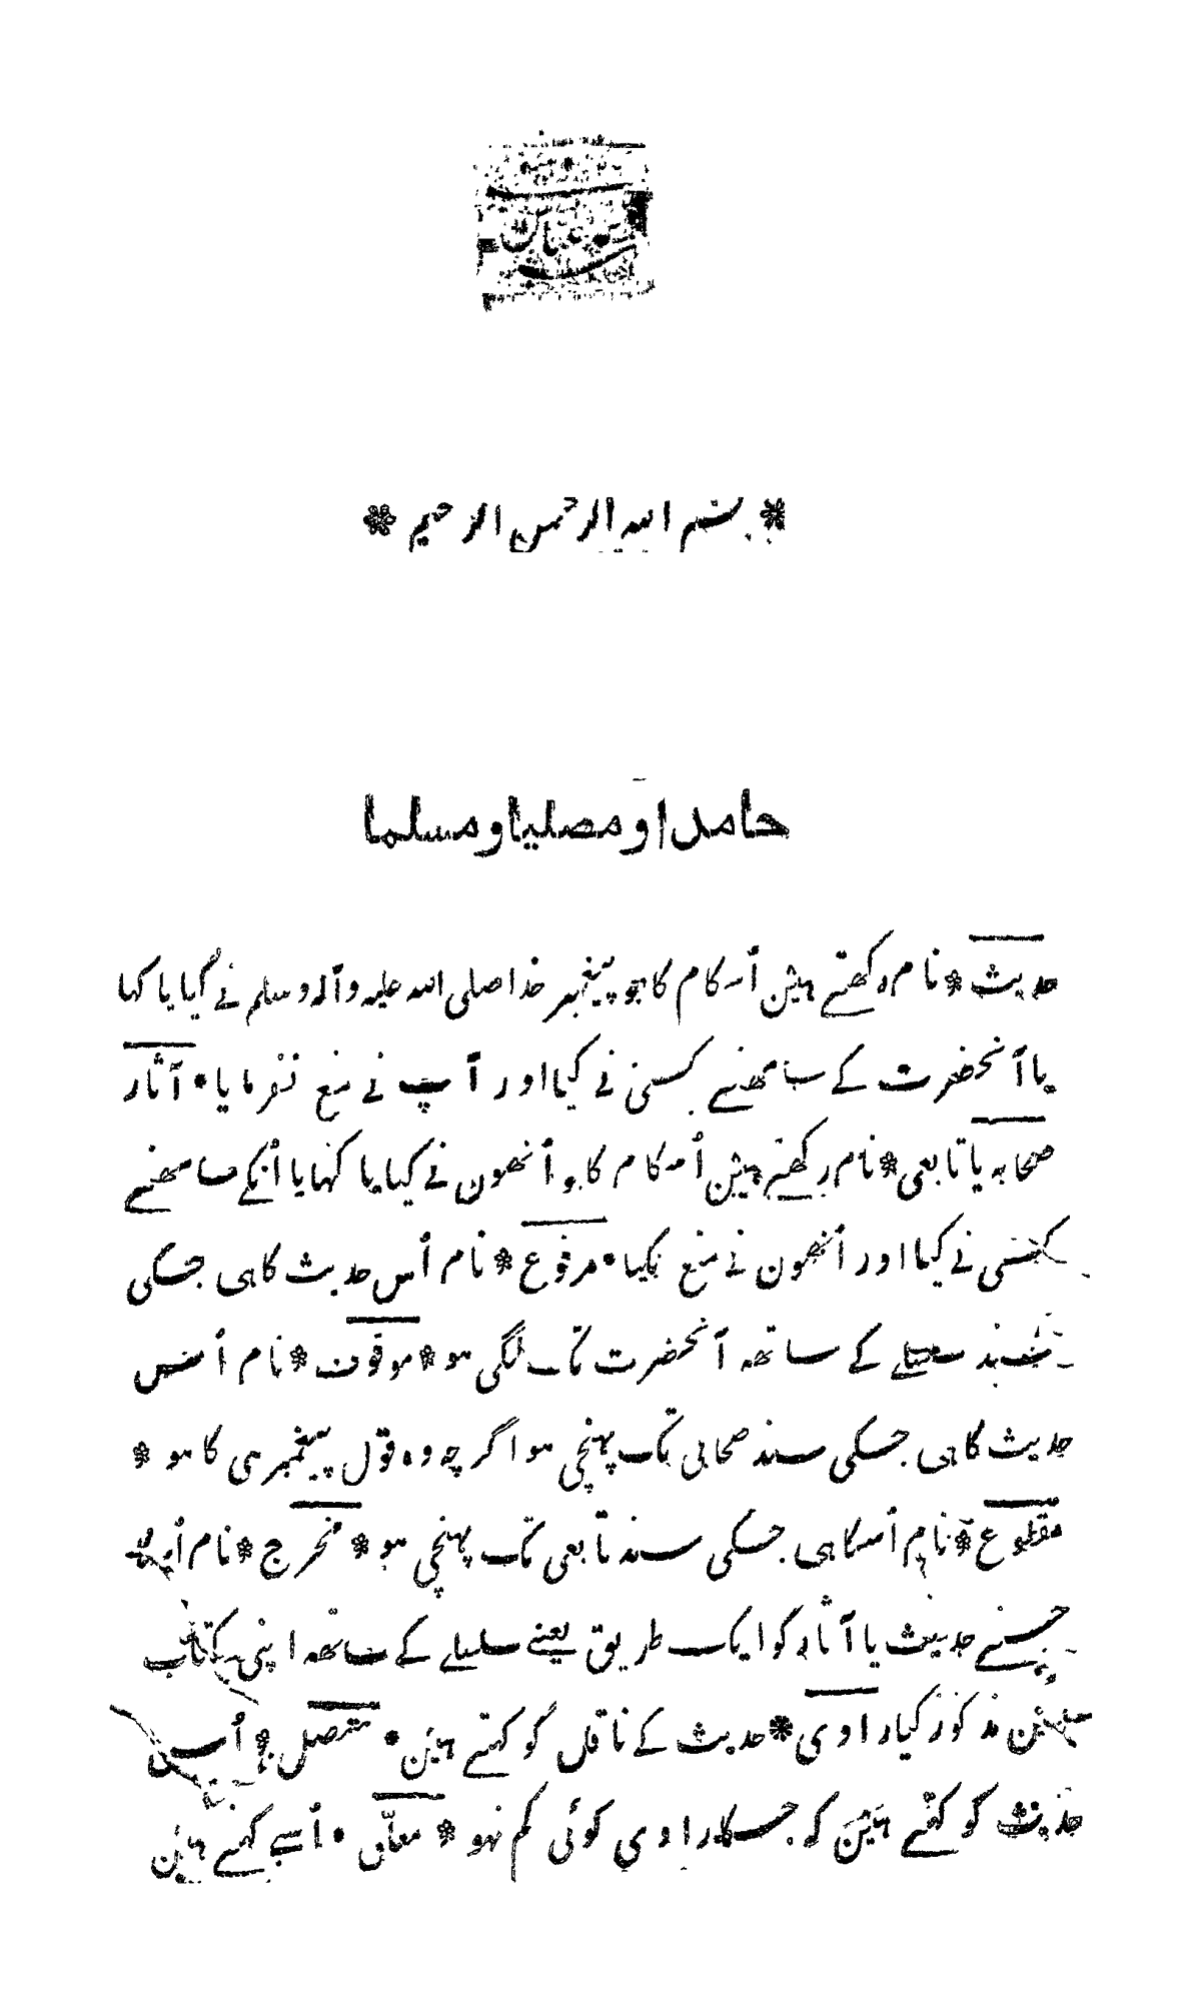 * بسم الله الرحمن الرحيم *
حامدا و مصليا و مسلما
حدیث * نام رکھتے ہین اُس کام کا جو پیغمبر خدا صلی الله علیه وآله وسلم نے کیا یا کہا
یا آنحضرت کے سامھنے کسی نے کیا اور آپ نے منع نفرمایا • آثار
صحابه یا تابعی * نام رکھتے ہین اُس کام کا جو اُنھون نے کیا یا کہا یا اُنکے سامھنے
کسی نے کیا اور اُنھون نے منع نکیا • مرفوع * نام اُس حدیث کا ہی جسکی
سند سلسلے کے ساتھه آنحضرت تک لگی هو * موقوف * نام اُس
حدیث کا ہی جسکی سند صحابی تک پہنچی هو اگرچه وه قول پیغمبر ہی کا هو *
مقطوع * نام اُسکا ہی جسکی سند تابعی تک پہنچی هو * مخرج * نام
جسنے حدیث یا آثار کو ایک طریق یعنے سلسلے کے ساتھه اپنی کتاب
مین مذکور کیا راوی * حدیث کے ناقل کو کہتے ہین • متصل * اُس
حدیث کو کہتے ہین که جسکا راوی کوئی کم نہو * معلّق • اُسے کہتے ہین